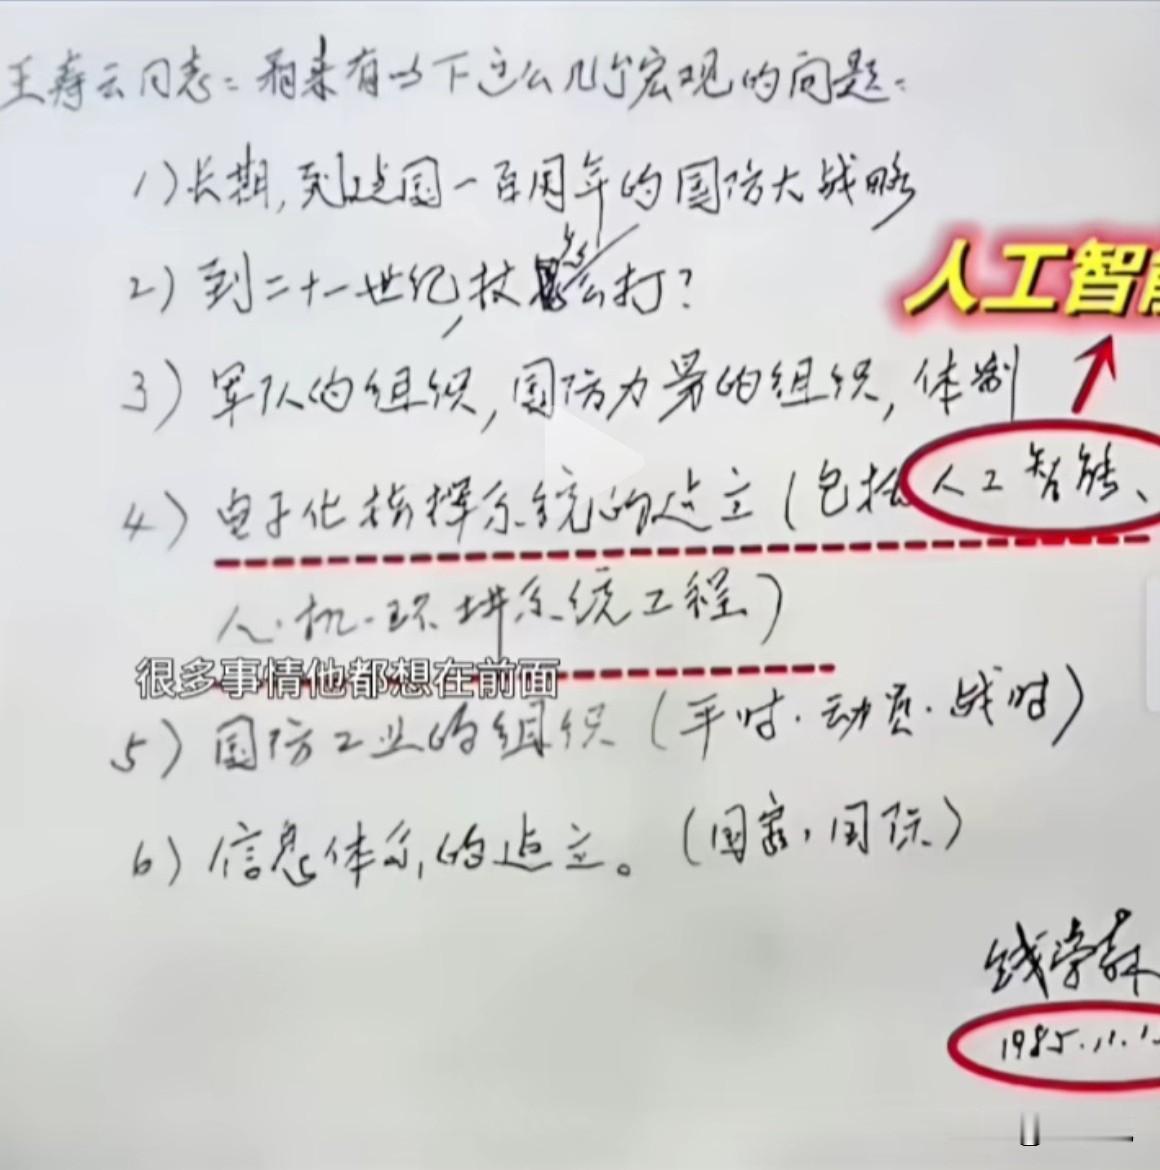 王寿云同志：看来有以下这么几个宏观的问题：
1）长期，到建国一百周年的国防大战略
2）到二十一世纪，仗怎么打？
人工智能
3）军队的组织，国防力量的组织，体制
4）电子化指挥系统的建立（包括人工智能、
人·机·环境系统工程）
很多事情他都想在前面
5）国防工业的组织（平时·动员·战时）
6）信息体系的建立。（国家，国际）
钱学森
1985.11.1